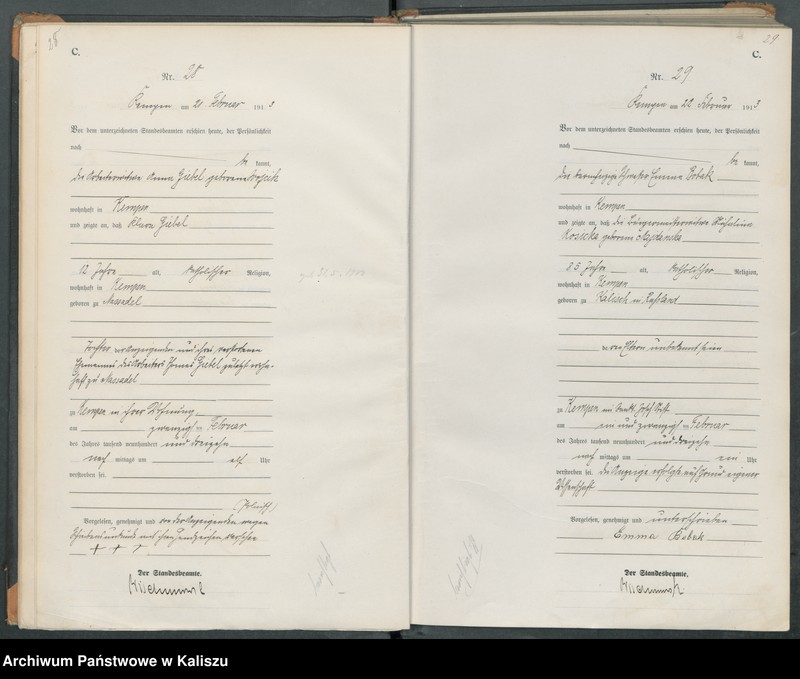 28
C.
Nr. 28
Kempen am 21 Februar 1913
Vor dem unterzeichneten Standesbeamten erschien heute, der Persönlichkeit
nach
be kannt,
die Arbeiterwitwe Anna Giebel geborene
wohnhaft in Kempen
und zeigte an, daß Klara Giebel
12 Jahre alt, katholischer Religion,
wohnhaft in Kempen
geboren zu Massadel
Tochter der Anzeigenden und ihres verstorbenen
Ehemannes des Arbeiters Giebel zuletzt wohn-
haft zu Massadel
zu Kempen in ihrer Wohnung
am zwanzigsten Februar
des Jahres tausend neunhundert und dreizehn
nach mittags um elf Uhr
verstorben sei.
Vorgelesen, genehmigt und von der Anzeigenden wegen
Schreibensunkunde mit ihren Handzeichen versehen
+ + +
Der Standesbeamte.
29
C.
Nr. 29
Kempen am 22 Februar 1913
Vor dem unterzeichneten Standesbeamten erschien heute, der Persönlichkeit
nach
be kannt,
die barmherzige Schwester Emma Bobek
wohnhaft in Kempen
und zeigte an, daß die Bürgermeisterwitwe
geborene
85 Jahre alt, katholischer Religion,
wohnhaft in Kempen
geboren zu Kalisch in Rußland
deren Eltern unbekannt seien
zu Kempen im Sankt Josef Stift
am ein und zwanzigsten Februar
des Jahres tausend neunhundert und dreizehn
nach mittags um ein Uhr
verstorben sei. Die Anzeige erfolgte auf Grund eigener
Wissenschaft
Vorgelesen, genehmigt und unterschrieben
Emma Bobek
Der Standesbeamte.
Archiwum Państwowe w Kaliszu